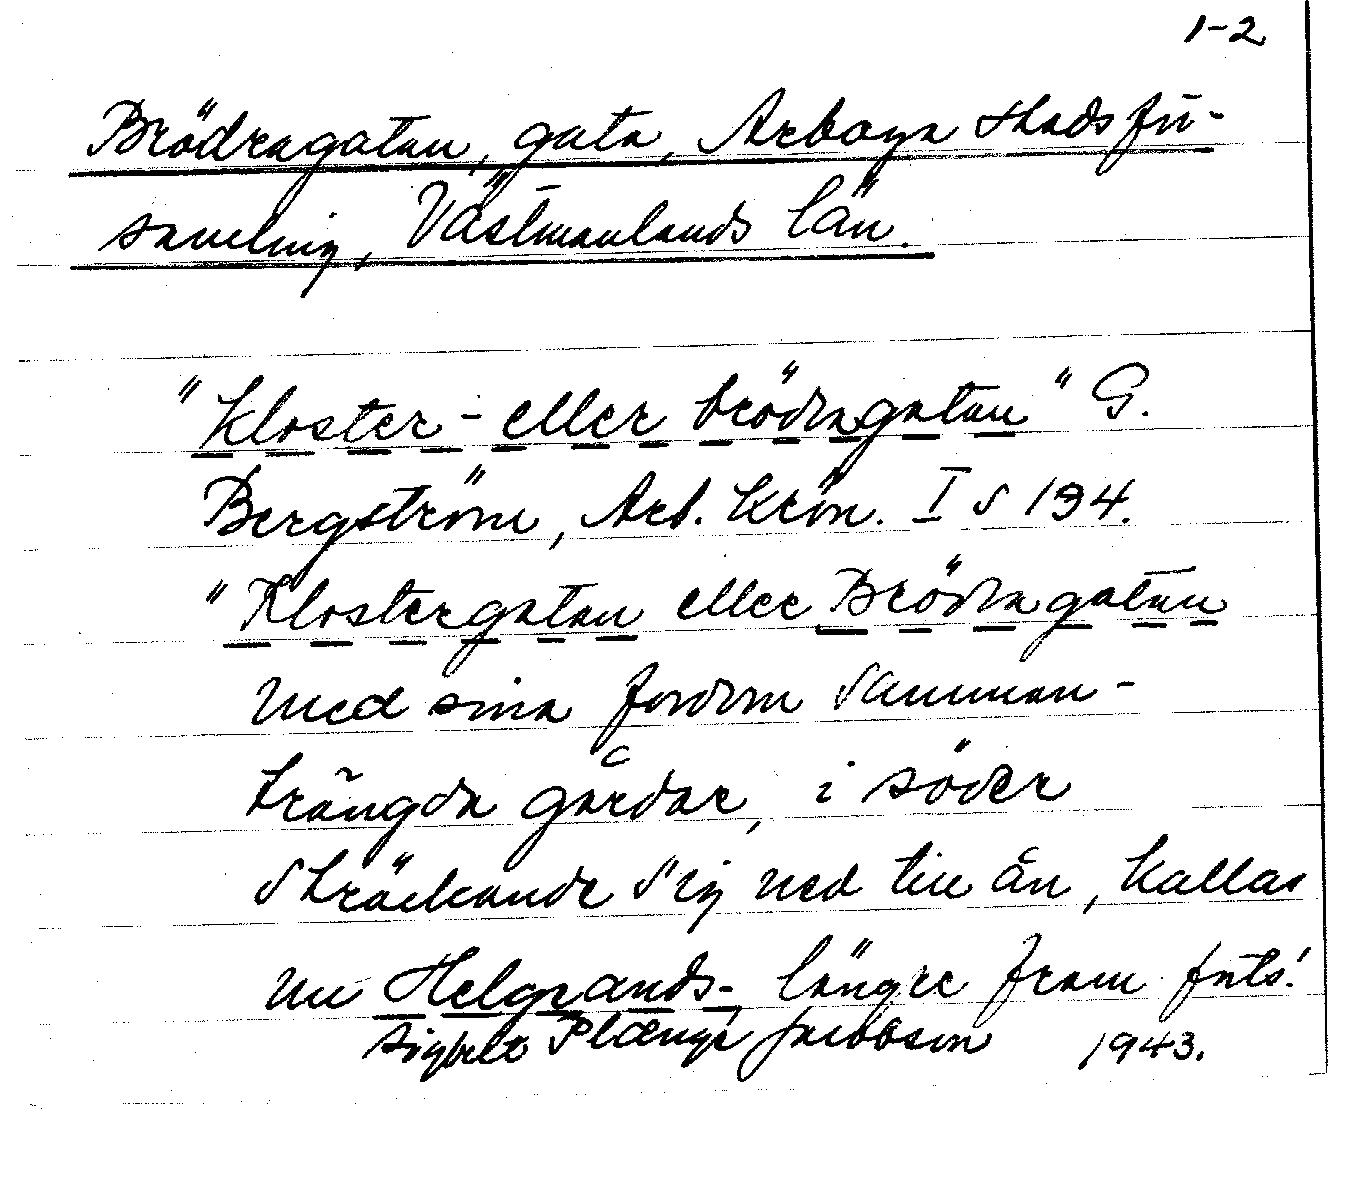 1-2
Brödragatan, gata, Arboga stadsför-
samling, Västmanlands län.
"Kloster- eller brödragatan" G.
Bergström, Arb. Krön. I s 194.
"Klostergatan eller Brödragatan
med sina fordom samman-
trängda gårdar, i söder
sträckande sig ned till ån, kallas
nu Helgeands-, längre fram
Sigbrit Plænge Jacobson 1943.